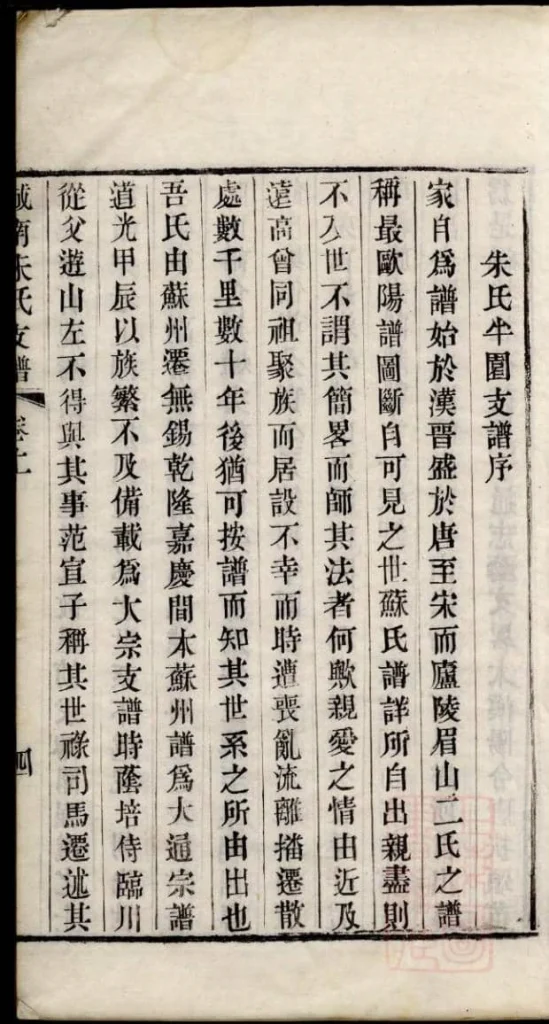 朱氏半園支譜序
家自爲譜始於漢晉盛於唐至宋而廬陵眉山二氏之譜
稱最歐陽譜圖斷自可見之世蘇氏譜詳所自出親盡則
不及世不謂其簡畧而師其法者何歟親愛之情由近及
遠高曾同祖聚族而居設不幸而時遭喪亂流離播遷散
處數千里數十年後猶可按譜而知其世系之所由出也
吾氏由蘇州遷無錫乾隆嘉慶間本蘇州譜爲大通宗譜
道光甲辰以族繁不及備載爲大宗支譜時蔭培侍臨川
從父遊山左不得與其事范宣子稱其世祿司馬遷述其
城南朱氏支譜 卷十一 四